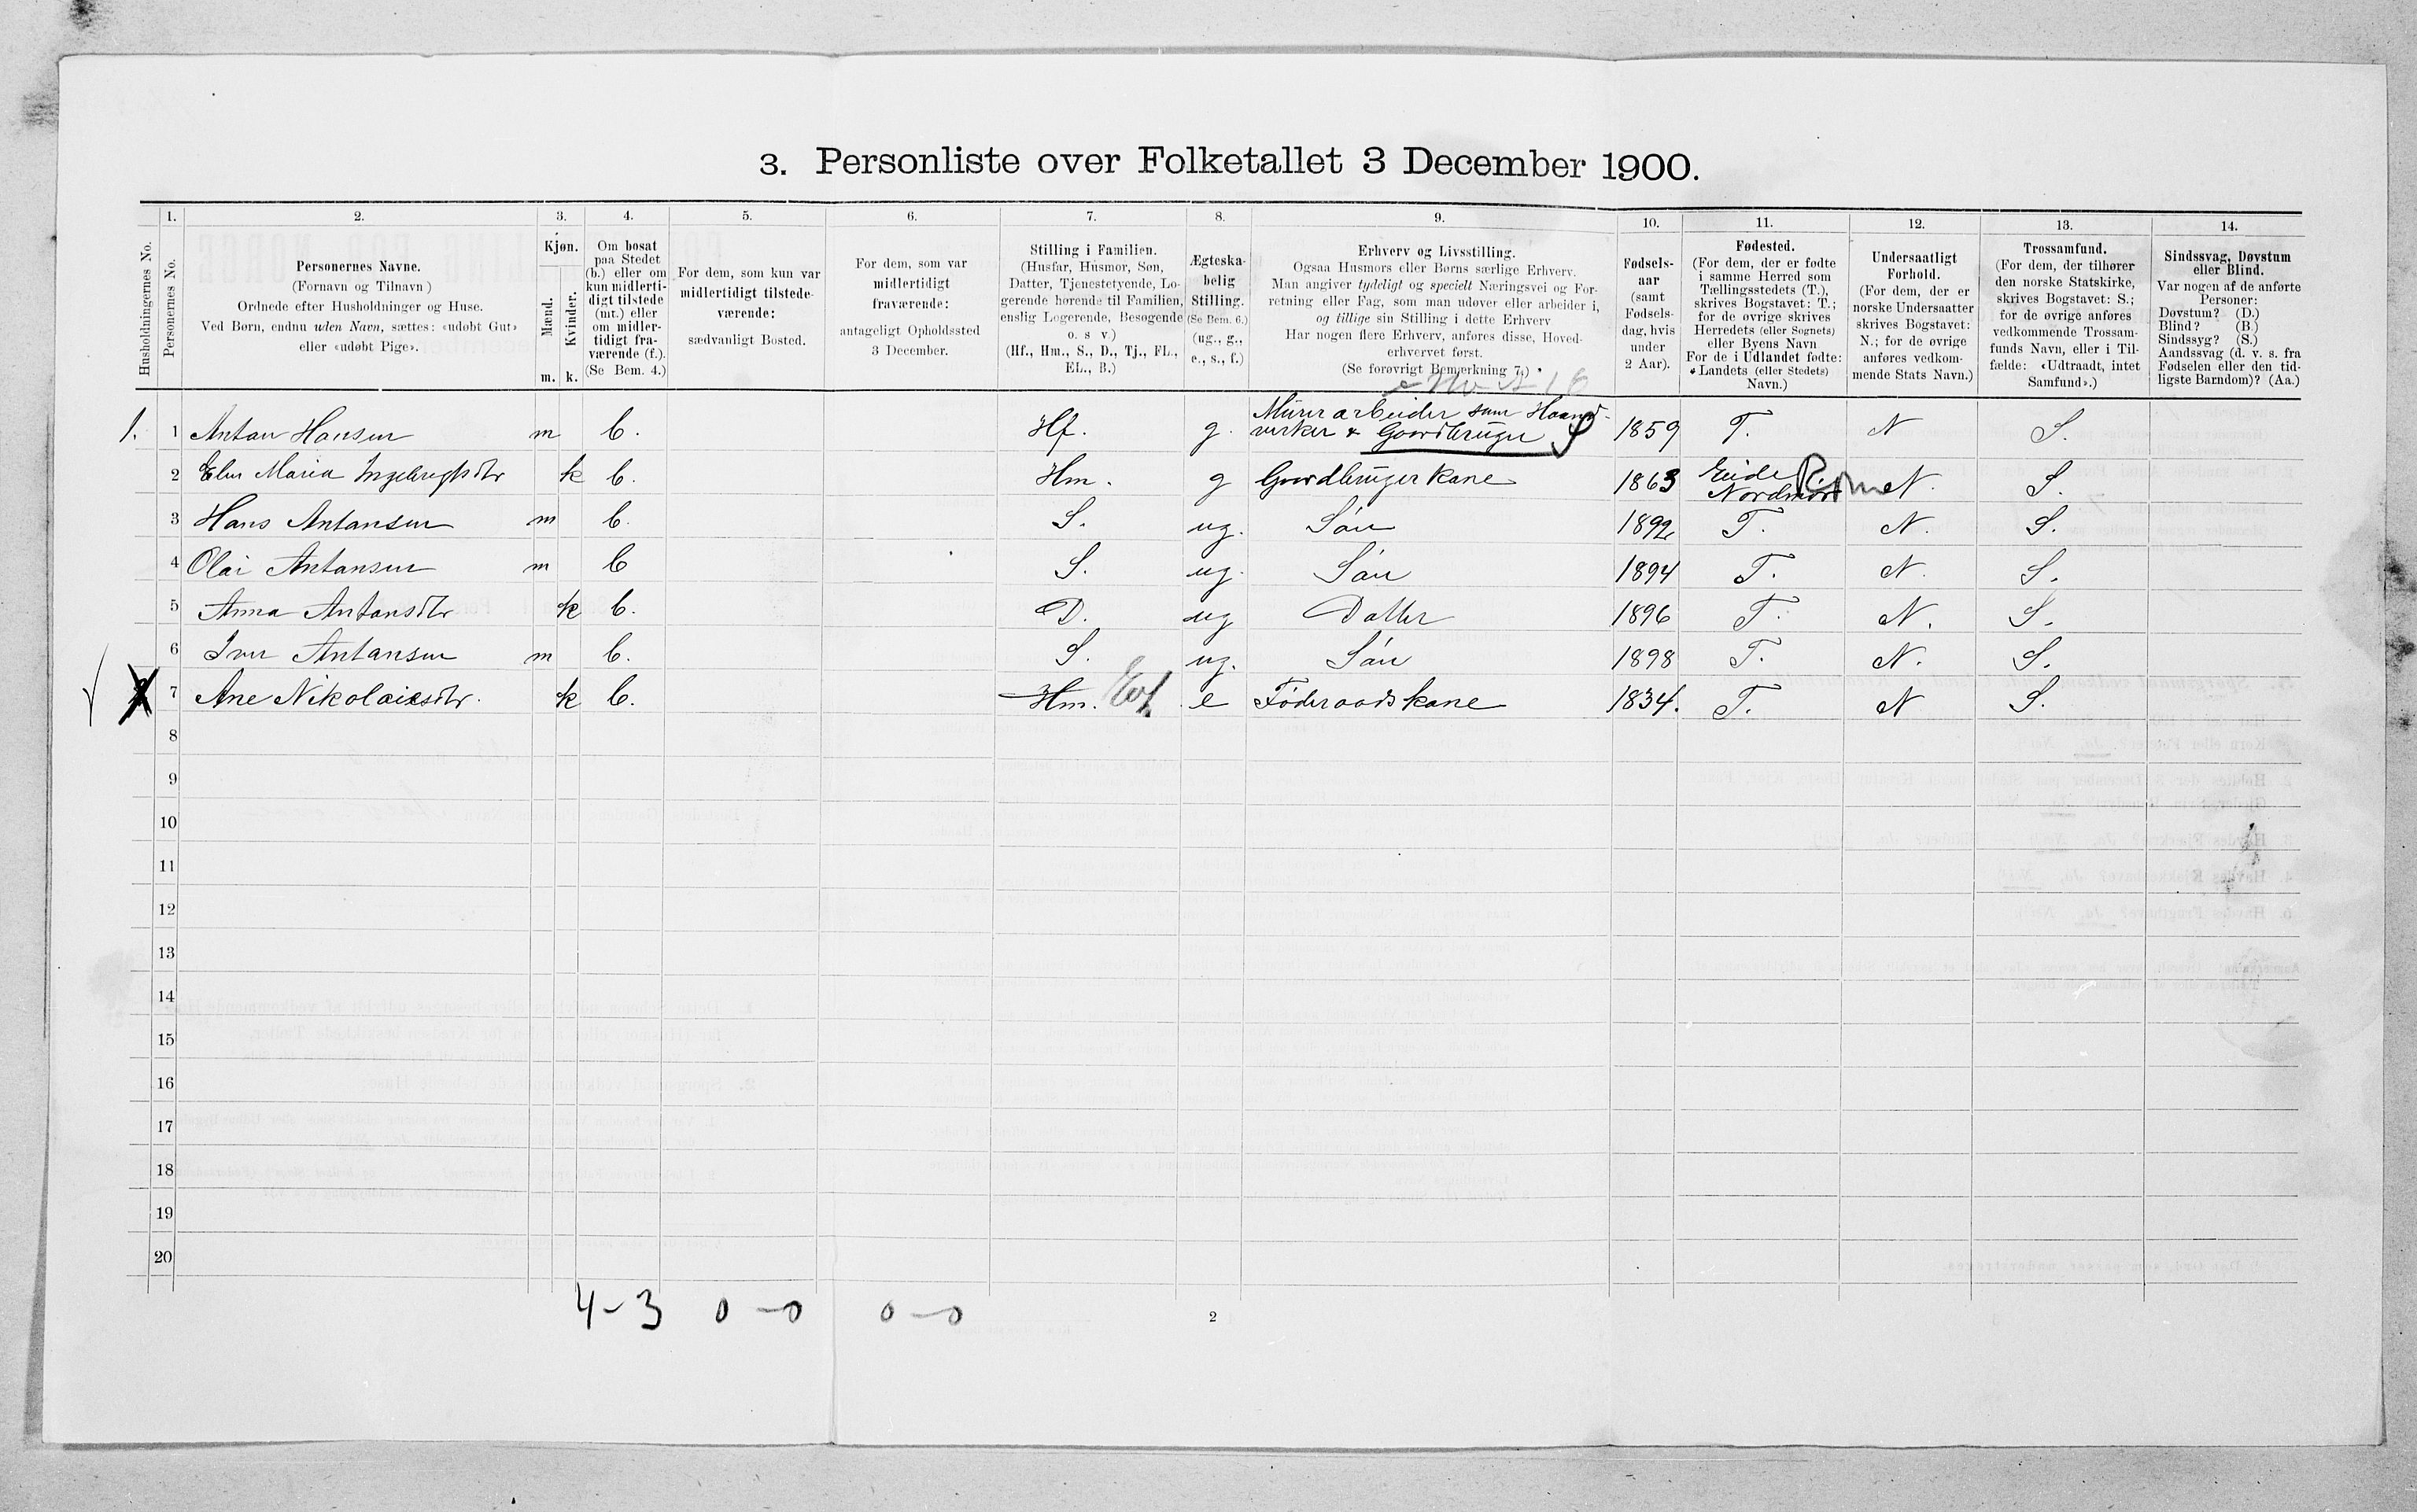 3. Personliste over Folketallet 3 December 1900.
1. 2. 3. 4. 5. 6. 7. 8. 9. 10. 11. 12. 13. 14.
Husholdningernes No.
Personernes No.
Personernes Navne.
(Fornavn og Tilnavn)
Ordnede efter Husholdninger og Huse.
Ved Børn, endnu uden Navn, sættes: «udøbt Gut»
eller «udøbt Pige».
Kjøn.
Mænd.
Kvinder.
m. k.
Om bosat
paa Stedet
(b.) eller om
kun midlerti-
digt tilstede
(mt.) eller
om midler-
tidigt fra-
værende (f.).
(Se Bem. 4.)
For dem, som kun var
midlertidigt tilstede-
værende:
sædvanligt Bosted.
For dem, som var
midlertidigt
fraværende:
antageligt Opholdssted
3 December.
Stilling i Familien.
(Husfar, Husmor, Søn,
Datter, Tjenestetyende, Lo-
gerende hørende til Familien,
enslig Logerende, Besøgende
o. s v.)
(Hf., Hm., S., D., Tj., FL.,
EL., B.)
Ægteska-
belig
Stilling.
(Se Bem. 6.)
(ug., g.,
e., s., f.)
Erhverv og Livsstilling.
Ogsaa Husmors eller Børns særlige Erhverv.
Man angiver tydeligt og specielt Næringsvei og For-
retning eller Fag, som man udøver eller arbeider i,
og tillige sin Stilling i dette Erhverv
Har nogen flere Erhverv, anføres disse, Hoved-
erhvervet først.
(Se forøvrigt Bemærkning 7.)
Fødsels-
aar
(samt
Fødsels-
dag, hvis
under
2 Aar).
Fødested.
(For dem, der er fødte
i samme Herred som
Tællingsstedets (T.),
skrives Bogstavet: T.;
for de øvrige skrives
Herredets (eller Sognets)
eller Byens Navn
For de i Udlandet fødte:
Landets (eller Stedets)
Navn.)
Undersaatligt
Forhold.
(For dem, der er
norske Undersaatter
skrives Bogstavet:
N.; for de øvrige
anføres vedkom-
mende Stats Navn.)
Trossamfund.
(For dem, der tilhører
den norske Statskirke,
skrives Bogstavet: S.;
for de øvrige anføres
vedkommende Trossam-
funds Navn, eller i Til-
fælde: «Udtraadt, intet
Samfund».)
Sindssvag, Døvstum
eller Blind.
Var nogen af de anførte
Personer:
Døvstum? (D.)
Blind? (B.)
Sindssyg? (S.)
Aandssvag (d. v. s. fra
Fødselen eller den tid-
ligste Barndom)? (Aa.)
1. 1 Antan Hansen m b. Hf. g. Mürerarbeider som Haand-
verker & Gaardbrüger 1859 T. N S.
2 Elen Maria Ingebrigtsdtr k b. Hm. g Gaardbrüger kone 1863 Eide
Nordmør N. S.
3 Hans Antansen m b. S. ug. Søn 1892 T. N. S.
4 Olai Antansen m b S. ug. Søn 1894 T. N. S.
5 Anna Antansdtr k b. D. ug Datter 1896 T. N. S.
6 Iver Antansen m b. S. ug. Søn 1898 T. N. S.
7 Ane Nikolaisdtr. k b. Hm. e Føderaadskone 1834. T. N S.
8
9
10
11
12
13
14
15
16
17
18
19
20
4-3 0-0 0-0
2